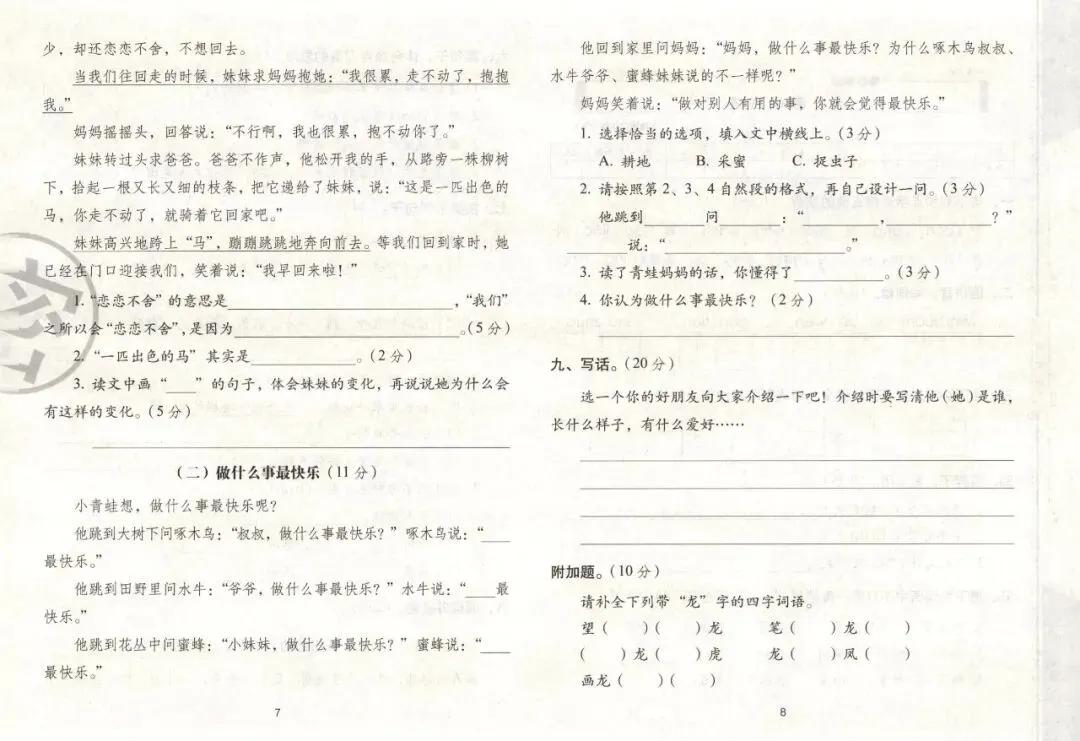 少，却还恋恋不舍，不想回去。
当我们往回走的时候，妹妹求妈妈抱她：“我很累，走不动了，抱抱
我。”
妈妈摇摇头，回答说：“不行啊，我也很累，抱不动你了。”
妹妹转过头求爸爸。爸爸不作声，他松开我的手，从路旁一株柳树
下，拾起一根又长又细的枝条，把它递给了妹妹，说：“这是一匹出色的
马，你走不动了，就骑着它回家吧。”
妹妹高兴地跨上“马”，蹦蹦跳跳地奔向前去。等我们回到家时，她
已经在门口迎接我们，笑着说：“我早回来啦！”
1.“恋恋不舍”的意思是____，“我们”
之所以会“恋恋不舍”，是因为____。(5分)
2.“一匹出色的马”其实是____。(2分)
3. 读文中画“____”的句子，体会妹妹的变化，再说说她为什么会
有这样的变化。(5分)
（二）做什么事最快乐(11分)
小青蛙想，做什么事最快乐呢？
他跳到大树下问啄木鸟：“叔叔，做什么事最快乐？”啄木鸟说：“____
最快乐。”
他跳到田野里问水牛：“爷爷，做什么事最快乐？”水牛说：“____最
快乐。”
他跳到花丛中问蜜蜂：“小妹妹，做什么事最快乐？”蜜蜂说：“____
最快乐。”
7
他回到家里问妈妈：“妈妈，做什么事最快乐？为什么啄木鸟叔叔、
水牛爷爷、蜜蜂妹妹说的不一样呢？”
妈妈笑着说：“做对别人有用的事，你就会觉得最快乐。”
1. 选择恰当的选项，填入文中横线上。(3分)
A. 耕地 B. 采蜜 C. 捉虫子
2. 请按照第2、3、4自然段的格式，再自己设计一问。(3分)
他跳到____问____：“____，____？”
____说：“____。”
3. 读了青蛙妈妈的话，你懂得了____。(3分)
4. 你认为做什么事最快乐？(2分)
九、写话。(20分)
选一个你的好朋友向大家介绍一下吧！介绍时要写清他(她)是谁，
长什么样子，有什么爱好……
附加题。(10分)
请补全下列带“龙”字的四字词语。
望（ ）（ ）龙 笔（ ）龙（ ）
（ ）龙（ ）虎 龙（ ）凤（ ）
画龙（ ）（ ）
8